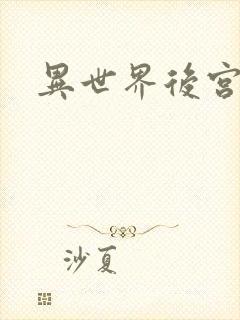 異世界後宮
沙夏